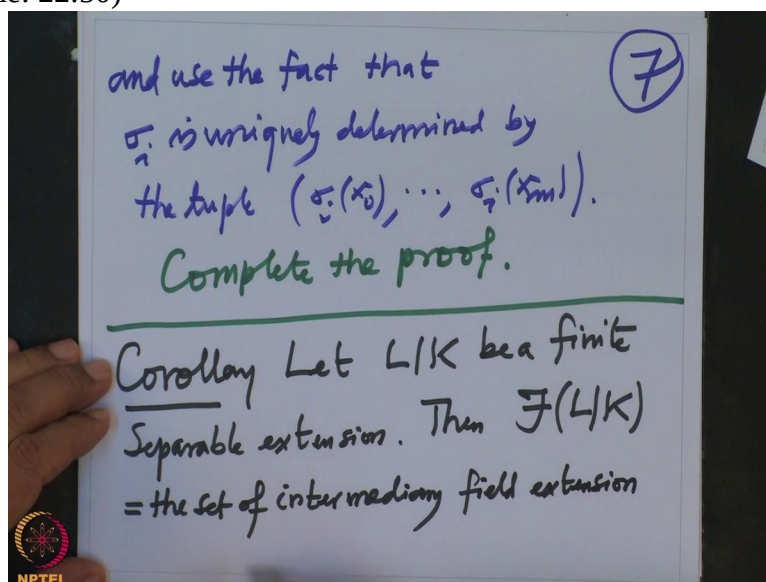 and use the fact that
7
σ_i is uniquely determined by
the tuple (σ_i(x_0), ..., σ_i(x_m)).
Complete the proof.
Corollary Let L|K be a finite
Separable extension. Then F(L|K)
= the set of intermediary field extension
NPTEL